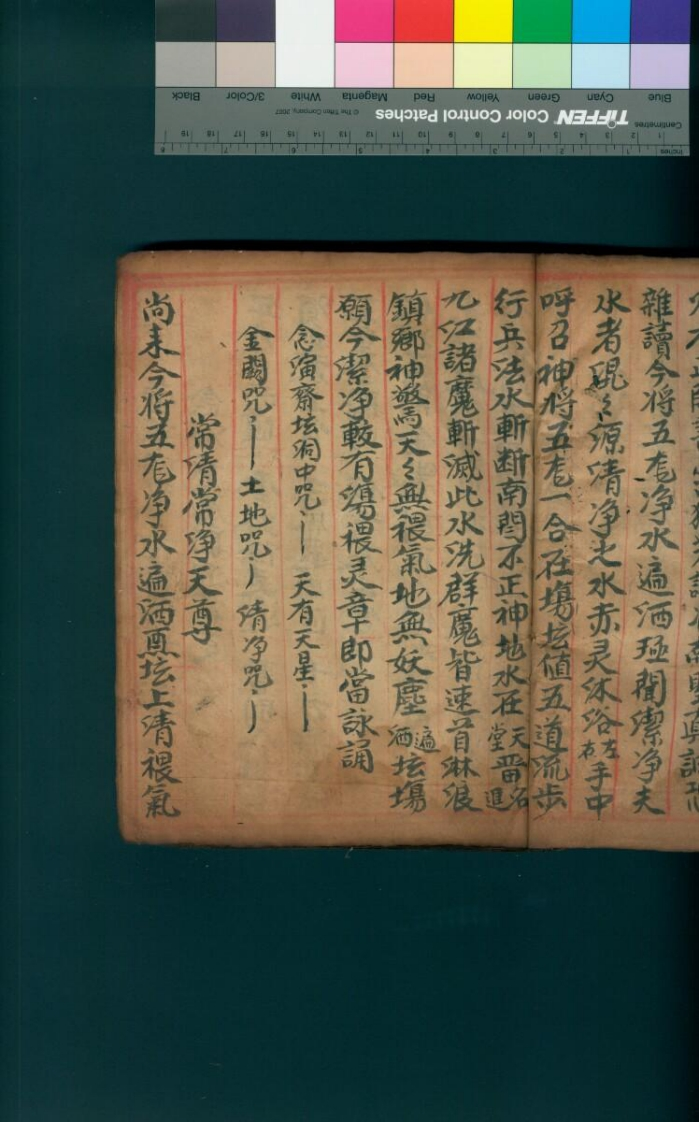 雜讀今将五尨净水遍洒 聞潔净夫
水者混々源清净之水赤灵沐浴左右手中
呼召神将五尨一合在塲坛值五道流步
行兵法水斬断南閆不正神地水在天堂畨名進
九江諸魔斬滅此水洗群魔皆速首淋浪
鎮鄉神驚天々無稂氣地無妖塵遍洒坛塲
願今潔净載有蕩稂灵章即當詠誦
念演齋坛洞中咒 天有天星
金闕咒 土地咒 清净咒
常清常净天尊
尚来今将五尨净水遍洒 坛上清稂氣
Blue
Cyan
Green
Yellow
Red
Magenta
White
3/Color
Black
TIFFEN Color Control Patches
© The Tiffen Company, 2007
Centimetres
Inches